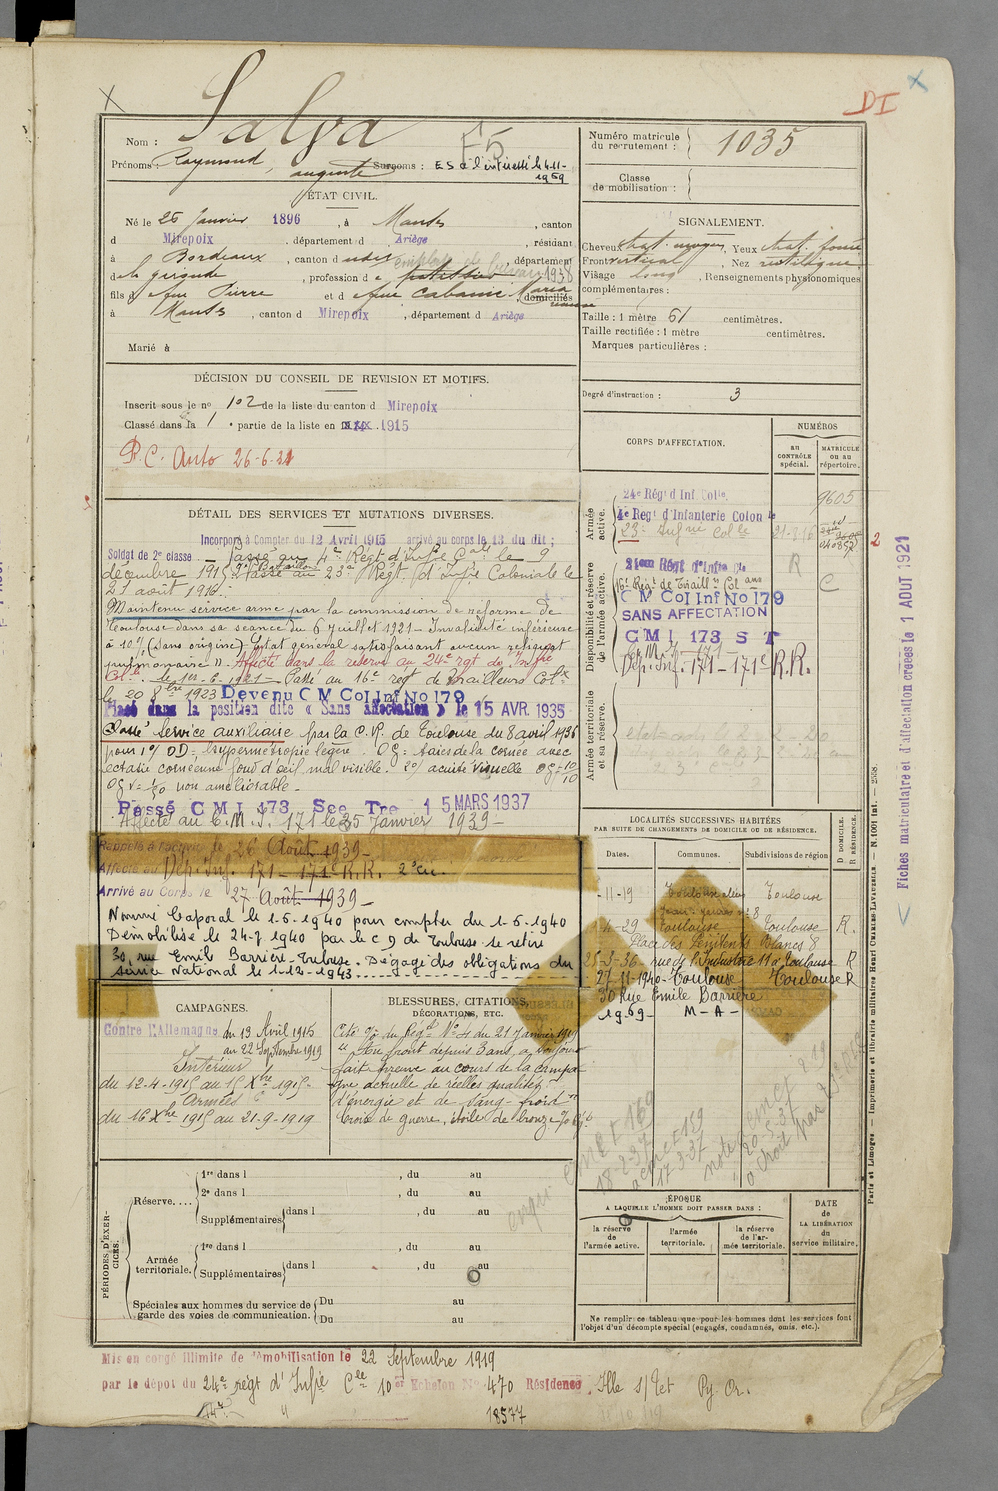 DI
Salva
Nom :
Prénoms : Raymond, auguste Surnoms : ES à l'intéressé le 4-11-1959
F5
ÉTAT CIVIL.
Né le 25 Janvier 1896, à Manses, canton
d Mirepoix, département d Ariège, résidant
à Bordeaux, canton d udes, département
de la gironde, profession de patissier 1938
fils de feu Pierre et de feue Cabanié Maria domiciliés
à Manses, canton d Mirepoix, département d Ariège
Marié à
DÉCISION DU CONSEIL DE REVISION ET MOTIFS.
Inscrit sous le n° 102 de la liste du canton d Mirepoix
Classé dans la 1e partie de la liste en 1915
P.C. Auto 26-6-21
DÉTAIL DES SERVICES ET MUTATIONS DIVERSES.
Incorporé à Compter du 12 Avril 1915 arrivé au corps le 13 du dit ;
Soldat de 2e classe — Passé au 4e Régt d'Infie Cale le 9
décembre 1915 Passé au 23e Régt d'Infie Coloniale le
21 août 1916.
Maintenu service armé par la commission de réforme de
Toulouse dans sa séance du 6 juillet 1921 – Invalidité inférieure
à 10% (sans origine) Etat général satisfaisant aucun reliquat
pulmonaire ». Affecté dans la réserve au 24e rgt de Infie
Cle. le 1er-6-1921 – Passé au 16e régt de Tirailleurs Colx
le 20 8bre 1923 Devenu C M Col Inf No 179
Placé dans la position dite « Sans affectation » le 15 AVR. 1935
Classé service auxiliaire par la C.R. de Toulouse du 8 avril 1936
pour 1°/ OD = hypermétropie légère. OG : taies de la cornée avec
ectasie cornéenne fond d'œil mal visible. 2°/ acuité visuelle OD = 10/10
OG v = 1/50 non améliorable –
Passé C M I 173 Sce Tre 15 MARS 1937
Affecté au C.M.I. 171 le 25 Janvier 1939 –
Rappelé à l'activité le 26 Août 1939 –
Affecté au Dép. Inf. 171 – 171e R.R. 2e Cie.
Arrivé au Corps le 27 Août 1939 –
Nommé Caporal le 1-5-1940 pour compter du 1-5-1940
Démobilisé le 24-7 1940 par le C D de Toulouse se retire
30, rue Emile Barrière-Toulouse. Dégagé des obligations du
service National le 1-12-1943
CAMPAGNES.
Contre l'Allemagne du 13 Avril 1915
au 22 Septembre 1919
Intérieur
du 12-4-1915 au 15 Xbre 1915
Armées
du 16 Xbre 1915 au 21-9-1919
BLESSURES, CITATIONS,
DÉCORATIONS, ETC.
Cité o/ du Régt N°4 du 21 Janvier 1919
« Au front depuis 3 ans, a toujours
fait preuve au cours de la campa
gne actuelle de réelles qualités
d'énergie et de sang-froid »
Croix de guerre, étoile de bronze
PÉRIODES D'EXERCICES.
Réserve....
1re dans l , du au
2e dans l , du au
Supplémentaires dans l , du au
Armée territoriale.
1re dans l , du au
Supplémentaires dans l , du au
Spéciales aux hommes du service de garde des voies de communication.
Du au
Du au
Mis en congé illimité de démobilisation le 22 Septembre 1919
par le dépôt du 24e régt d'Infie Cle 10e Echelon No 470 Résidence, Ille s/ Tet Py. Or.
18577
Numéro matricule du recrutement : 1035
Classe de mobilisation :
SIGNALEMENT.
Cheveux chat. moyen Yeux chat. foncé
Front vertical, Nez rectiligne
Visage long, Renseignements physionomiques
complémentaires :
Taille : 1 mètre 61 centimètres.
Taille rectifiée : 1 mètre centimètres.
Marques particulières :
Degré d'instruction : 3
CORPS D'AFFECTATION.
NUMÉROS
au CONTRÔLE spécial.
MATRICULE ou au répertoire.
Armée active.
24e Régt d'Inf Colle. 9605
4e Regt d'Infanterie Colon le
23e Infrie Colle 21-8-16
2
Disponibilité et réserve de l'armée active.
24ème Régt d'Infie Cle R
16e Régt de Tiraill rs Col aux C
C M Col Inf No 179
SANS AFFECTATION
C M I 173 S T
C. M. I. – 171 –
Dép. Inf. 171 – 171e R.R.
Armée territoriale et sa réserve.
LOCALITÉS SUCCESSIVES HABITÉES
PAR SUITE DE CHANGEMENTS DE DOMICILE OU DE RÉSIDENCE.
Dates. Communes. Subdivisions de région D DOMICILE. R RÉSIDENCE.
-11-19 Toulouse
4-29 Toulouse Toulouse R.
Place des Pénitents Blancs 8
25-3-36 rue de l'Industrie 11 à Toulouse R
27-11-1940 Toulouse Toulouse R
30 Rue Emile Barrière
1959 – M – A –
ÉPOQUE
A LAQUELLE L'HOMME DOIT PASSER DANS :
la réserve de l'armée active.
l'armée territoriale.
la réserve de l'armée territoriale.
DATE de LA LIBÉRATION du service militaire.
Ne remplir ce tableau que pour les hommes dont les services font
l'objet d'un décompte spécial (engagés, condamnés, omis, etc.).
Fiches matriculaire et d'affectation créées le 1 AOUT 1921
Paris et Limoges. — Imprimerie et librairie militaires Henri CHARLES-LAVAUZELLE. — N. 1001 int. — 2558.